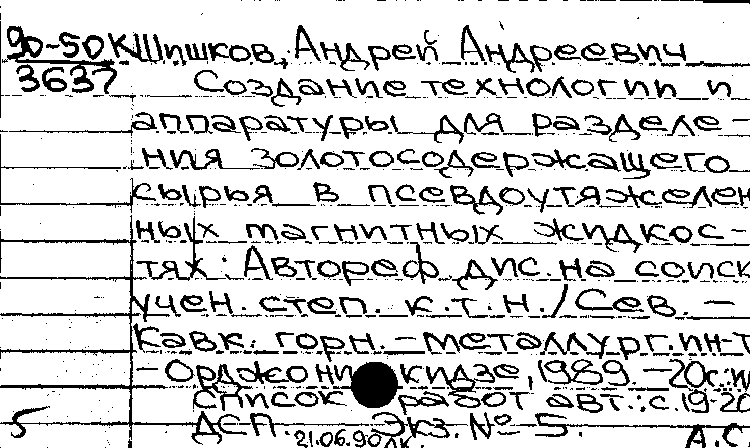 90-50К Шишков, Андрей Андреевич
3637 Создание технологии и
аппаратуры для разделе-
ния золотосодержащего
сырья в псевдоутяжелен
ных магнитных жидкос-
тях: Автореф. дис. на соиск
учен. степ. к.т.н./Сев.-
Кавк. горн.-металлург. ин-т
-Орджоникидзе, 1989.-20с.:и
Список работ авт.: с.19-20
5 ДСП. Экз. № 5.
21.06.90 А.С